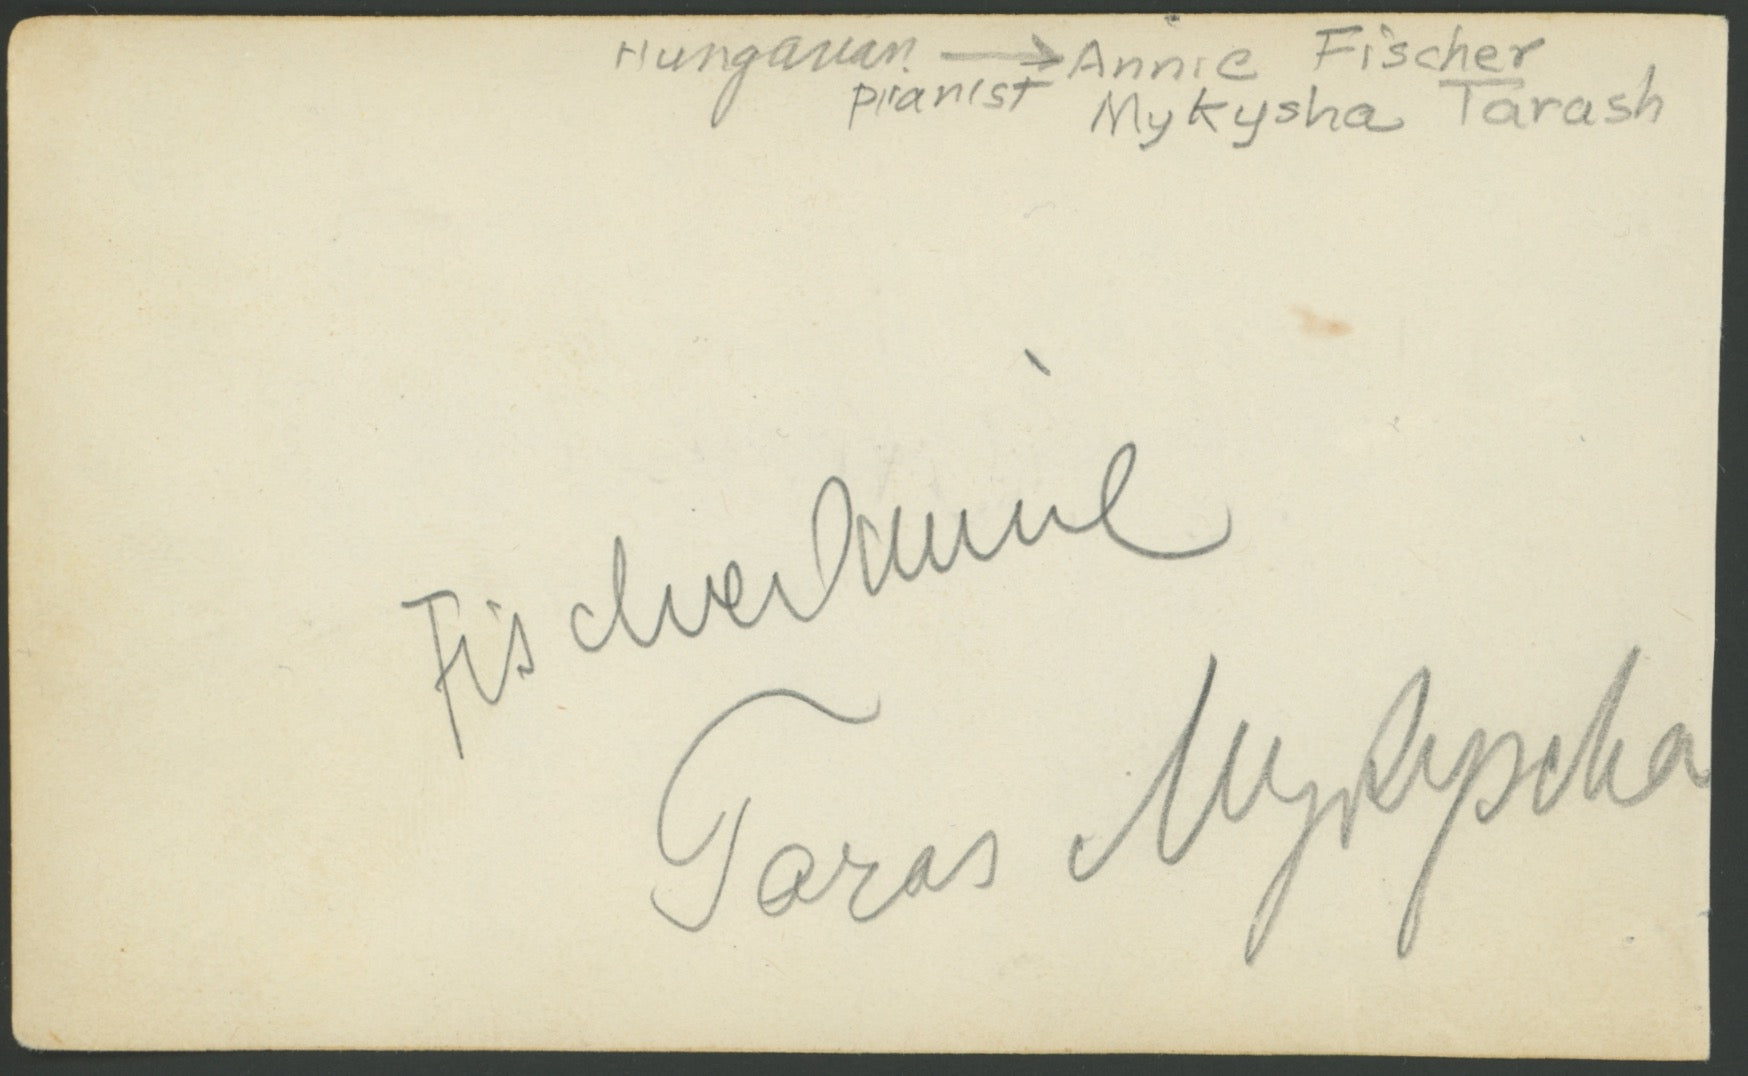 Hungarian → Annie Fischer
pianist Mykysha Tarash
Fischer Annie
Taras Mykyscha